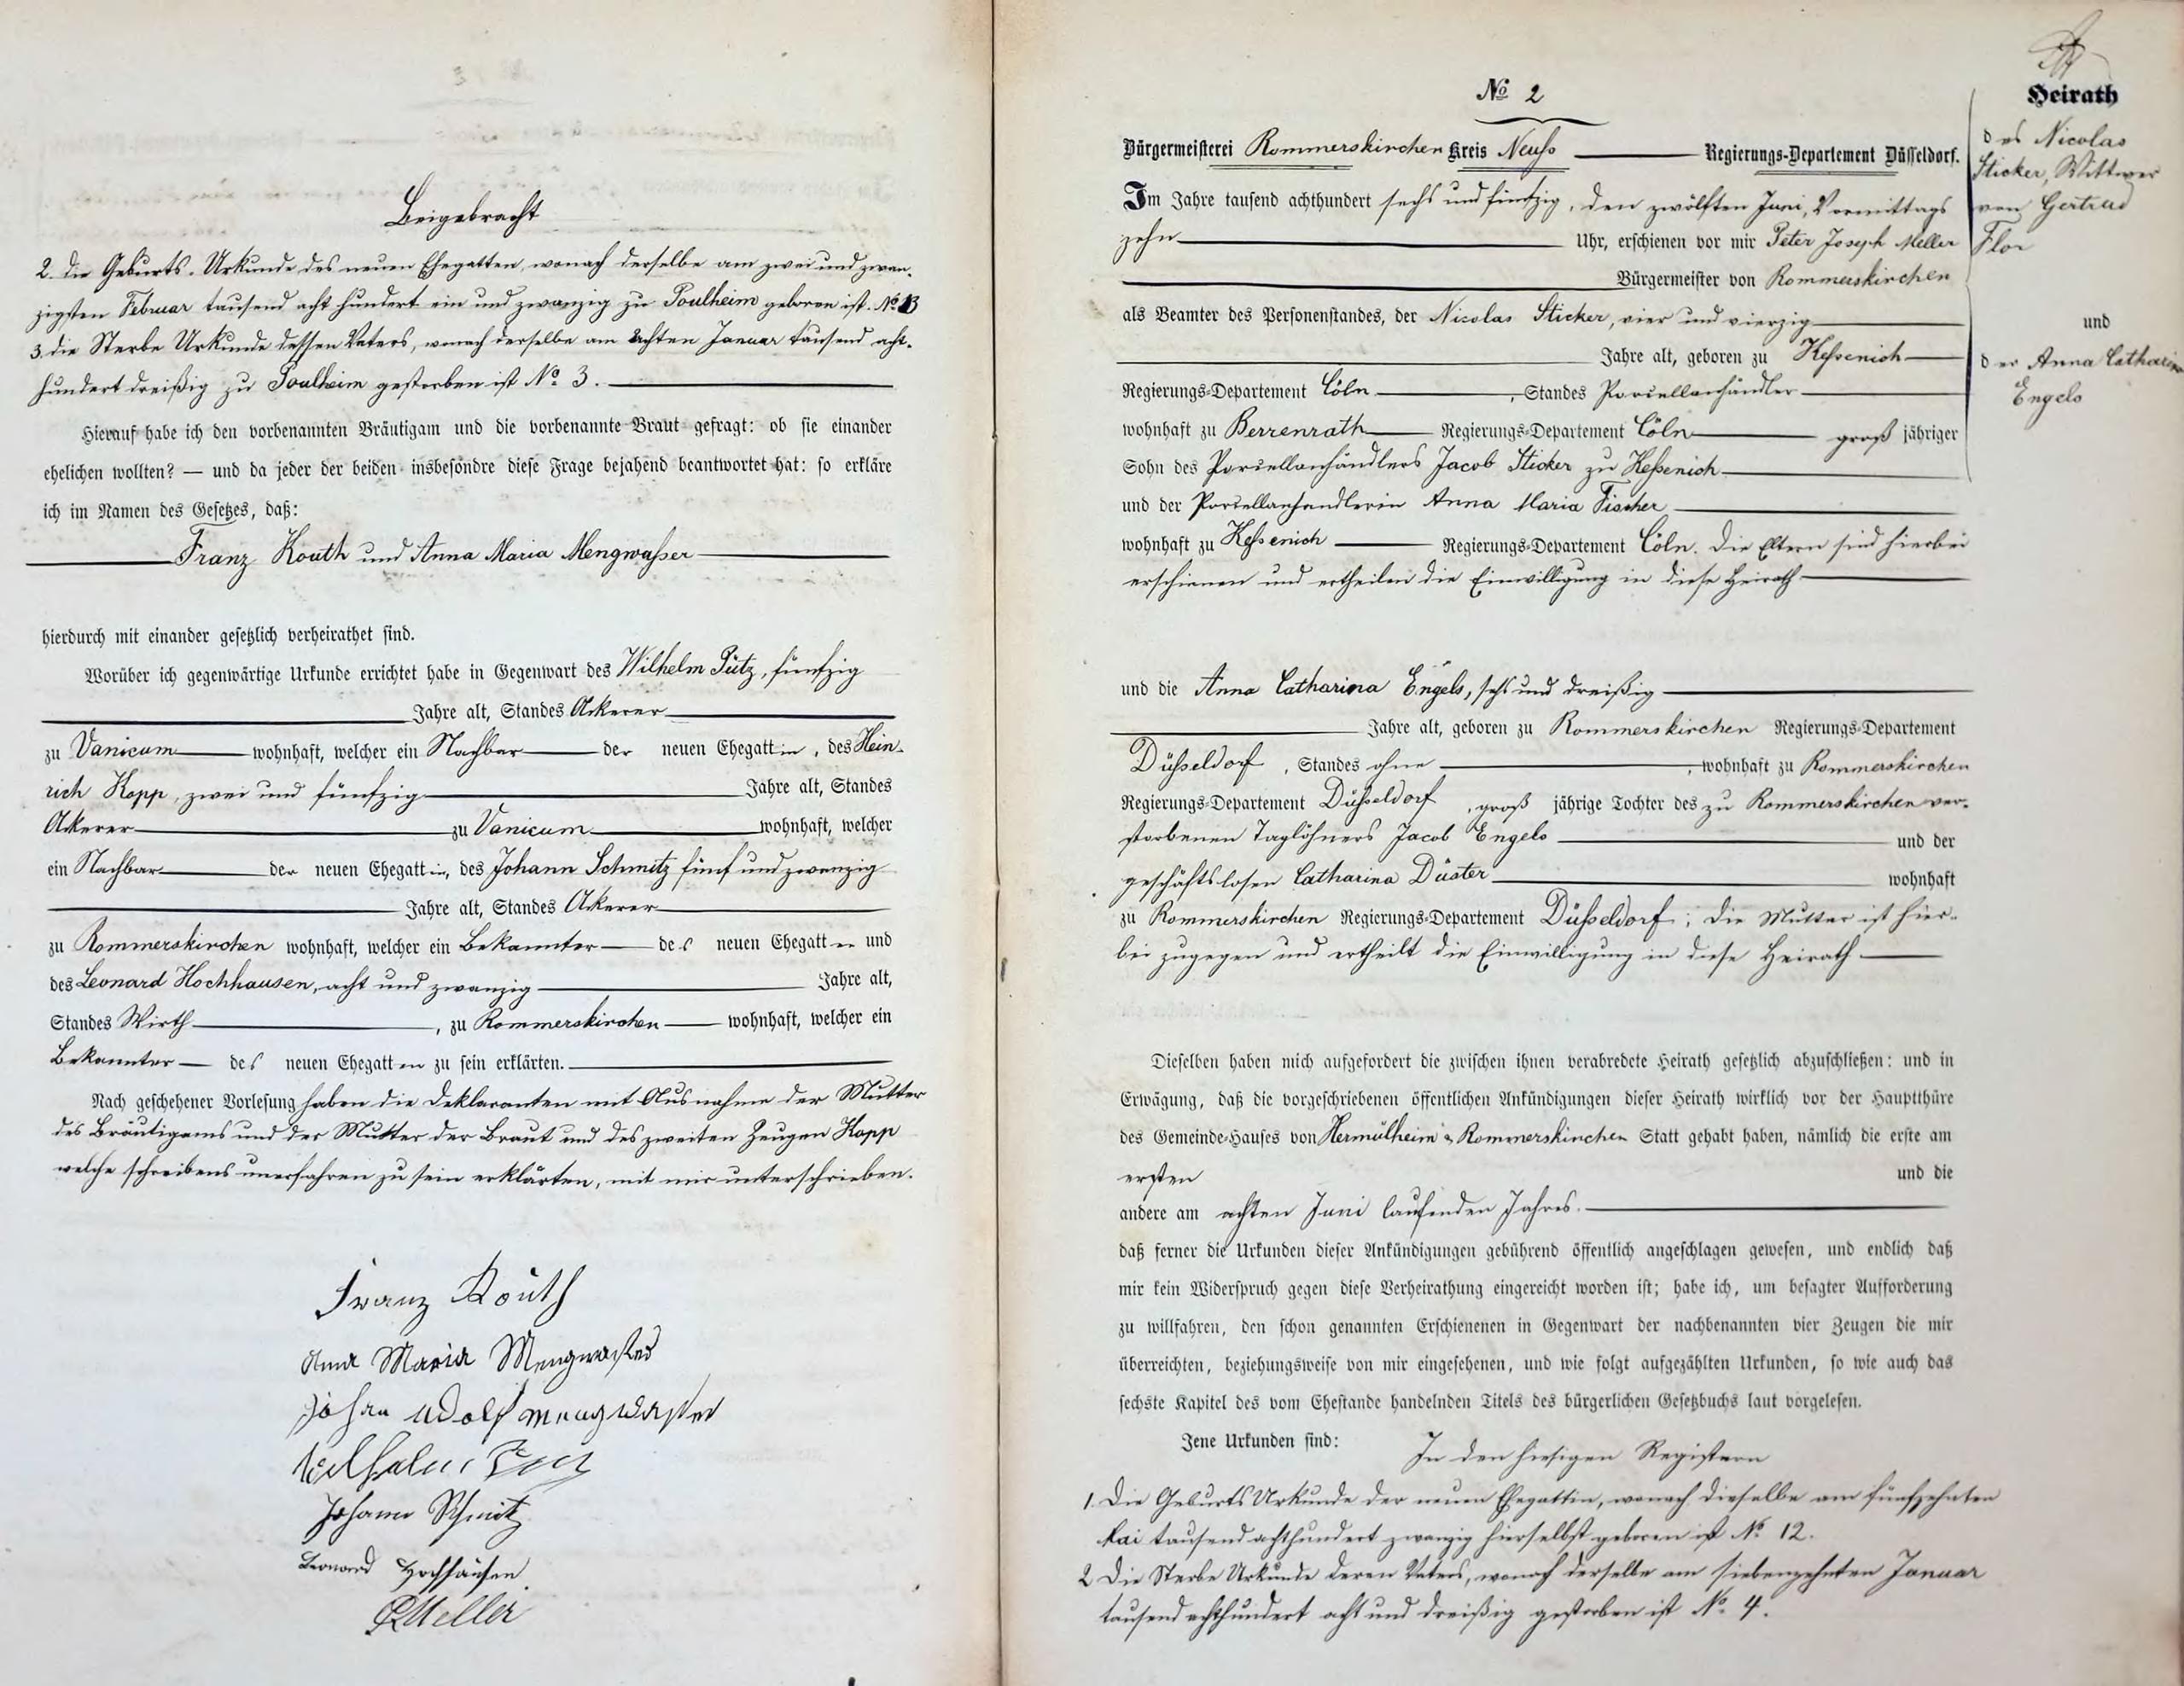 Beigebracht
2. die Geburts-Urkunde des neuen Ehegatten, wonach derselbe am zwei und zwan-
zigsten Februar tausend acht hundert ein und zwanzig zu Poulheim geboren ist. No 13
3. die Sterbe Urkunde dessen Vaters, wonach derselbe am achten Januar tausend acht-
hundert dreißig zu Poulheim gestorben ist No 3.
Hierauf habe ich den vorbenannten Bräutigam und die vorbenannte Braut gefragt: ob sie einander
ehelichen wollten? — und da jeder der beiden insbesondre diese Frage bejahend beantwortet hat: so erkläre
ich im Namen des Gesetzes, daß:
Franz Kouth und Anna Maria Mengwasser
hierdurch mit einander gesetzlich verheirathet sind.
Worüber ich gegenwärtige Urkunde errichtet habe in Gegenwart des Wilhelm Pütz, fünfzig
Jahre alt, Standes Ackerer
zu Vanicum wohnhaft, welcher ein Nachbar der neuen Ehegattin, des Hein-
rich Kopp, zwei und fünfzig Jahre alt, Standes
Ackerer zu Vanicum wohnhaft, welcher
ein Nachbar der neuen Ehegattin, des Johann Schmitz fünf und zwanzig
Jahre alt, Standes Ackerer
zu Rommerskirchen wohnhaft, welcher ein Bekannter des neuen Ehegatten und
des Leonard Hochhausen, acht und zwanzig Jahre alt,
Standes Wirth, zu Rommerskirchen wohnhaft, welcher ein
Bekannter des neuen Ehegatten zu sein erklärten.
Nach geschehener Vorlesung haben die Deklaranten mit Ausnahme der Mutter
des Bräutigams und der Mutter der Braut und des zweiten Zeugen Kopp
welche schreibens unerfahren zu sein erklärten, mit mir unterschrieben.
Franz Kouth
Anna Maria Mengwasser
Johan Adolf Mengwasser
Wilhelm Pütz
Johann Schmitz
Leonard Hochhausen
PMeller
No 2
Bürgermeisterei Rommerskirchen Kreis Neuss Regierungs-Departement Düsseldorf.
Im Jahre tausend achthundert sechs und fünfzig, den zwölften Juni, Vormittags
zehn Uhr, erschienen vor mir Peter Joseph Meller
Bürgermeister von Rommerskirchen
als Beamter des Personenstandes, der Nicolas Sticker, vier und vierzig
Jahre alt, geboren zu Kessenich
Regierungs-Departement Cöln, Standes Porcellanhändler
wohnhaft zu Berrenrath Regierungs-Departement Cöln groß jähriger
Sohn des Porcellanhändlers Jacob Sticker zu Kessenich
und der Porcellanhandlerin Anna Maria Fischer
wohnhaft zu Kessenich Regierungs-Departement Cöln. Die Eltern sind hierbei
erschienen und ertheilen die Einwilligung in diese Heirath
und die Anna Catharina Engels, sechs und dreißig
Jahre alt, geboren zu Rommerskirchen Regierungs-Departement
Düsseldorf, Standes ohne, wohnhaft zu Rommerskirchen
Regierungs-Departement Düsseldorf, groß jährige Tochter des zu Rommerskirchen ver-
storbenen Taglöhners Jacob Engels und der
geschäftslosen Catharina Düster wohnhaft
zu Rommerskirchen Regierungs-Departement Düsseldorf; die Mutter ist hier-
bei zugegen und ertheilt die Einwilligung in diese Heirath
Dieselben haben mich aufgefordert die zwischen ihnen verabredete Heirath gesetzlich abzuschließen: und in
Erwägung, daß die vorgeschriebenen öffentlichen Ankündigungen dieser Heirath wirklich vor der Hauptthüre
des Gemeinde-Hauses von Hermülheim & Rommerskirchen Statt gehabt haben, nämlich die erste am
ersten und die
andere am achten Juni laufenden Jahres.
daß ferner die Urkunden dieser Ankündigungen gebührend öffentlich angeschlagen gewesen, und endlich daß
mir kein Widerspruch gegen diese Verheirathung eingereicht worden ist; habe ich, um besagter Aufforderung
zu willfahren, den schon genannten Erschienenen in Gegenwart der nachbenannten vier Zeugen die mir
überreichten, beziehungsweise von mir eingesehenen, und wie folgt aufgezählten Urkunden, so wie auch das
sechste Kapitel des vom Ehestande handelnden Titels des bürgerlichen Gesetzbuchs laut vorgelesen.
Jene Urkunden sind: In den hiesigen Registern
1. Die Geburts Urkunde der neuen Ehegattin, wonach dieselbe am fünfzehnten
Mai tausend achthundert zwanzig hierselbst geboren ist No 12.
2 Die Sterbe Urkunde deren Vaters, wonach derselbe am siebenzehnten Januar
tausend achthundert acht und dreißig gestorben ist No. 4.
Heirath
des Nicolas
Sticker, Wittwer
von Gertrud
Flor
und
der Anna Catharina
Engels